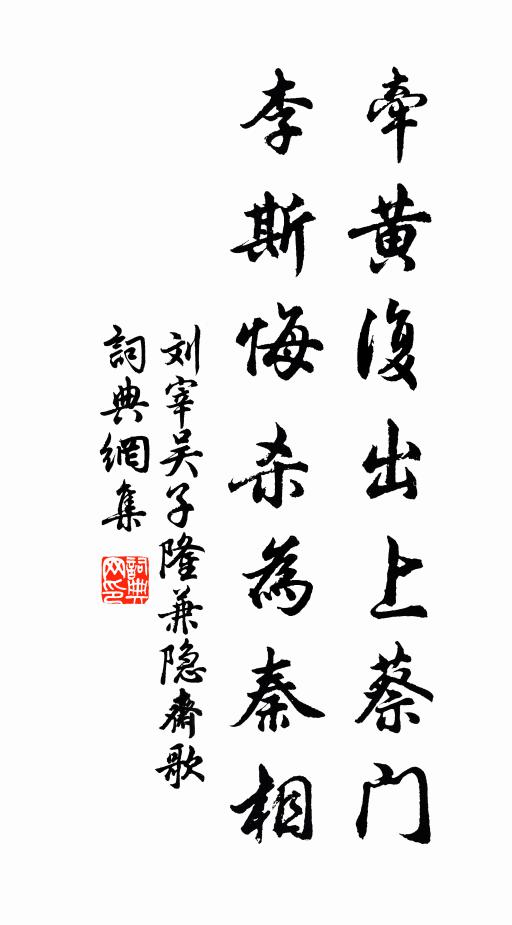 牵黄復出上蔡门
李斯悔杀為秦相
刘宰吴子隆兼隐齋歌
詞典網集
詞典网印